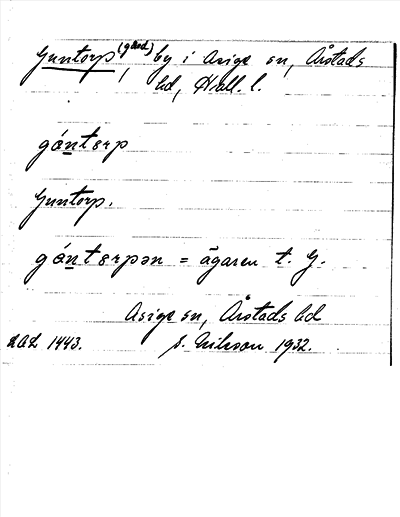 Guntorp (gård), by i Asige sn, Årstads
hd, Hall. l.
gónterp
Guntorp.
gónterpən = ägaren t. G.
Asige sn, Årstads hd
LAL 1443. S. Nilsson 1932.